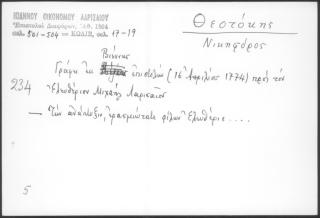 ΙΩΑΝΝΟΥ ΟΙΚΟΝΟΜΟΥ ΛΑΡΙΣΑΙΟΥ
Ἐπιστολαὶ Διαφόρων, Ἀθ. 1964
σελ. 501-504 = ΚΩΔΙΞ, σελ. 17-19
Θεοτόκης
Νικηφόρος
Βιέννης
Γράφει ἐκ ἐπιστολὴν (16 Ἀπριλίου 1774) πρὸς τὸν
234 Ἐλευθέριον Μιχαὴλ Λαρισαῖον
— Τὴν ἀπάντησιν, ἐρασμιώτατε φίλων Ἐλευθέριε ....
5